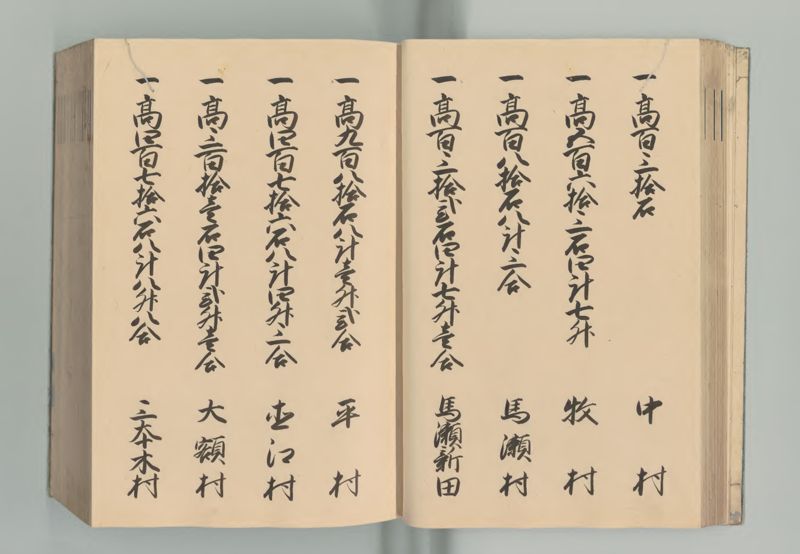 一 高百三拾石 中村
一 高五百六拾三石四斗七升 牧村
一 高百八拾石八斗三合 馬瀬村
一 高百三拾弐石四斗七升壱合 馬瀬新田
一 高九百八拾石八斗壱升弐合 平村
一 高四百七拾六石八斗四升三合 江村
一 高三百拾壱石四斗弐升壱合 大額村
一 高四百七拾六石八斗八升八合 三本木村